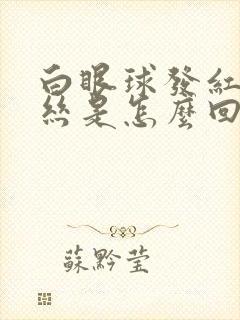 白眼球發紅
絲是怎麼回
蘇黔莹